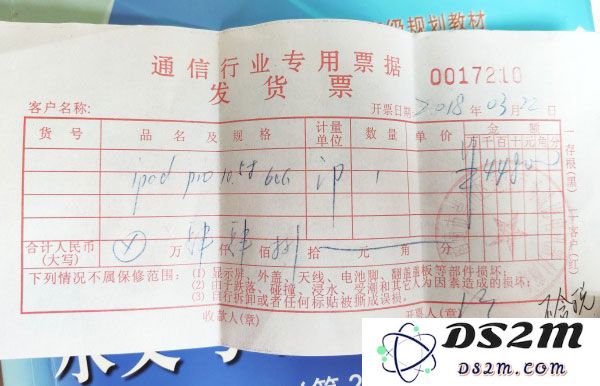 级规划教材
通信行业专用票据
发货票
0017210
客户名称: 开票日期 2018 年 03 月 22 日
货号 品名及规格 计量单位 数量 单价 金额
万 千 百 十 元 角 分
ipad pro 10.5寸 64G 1 4480
合计人民币(大写) 万 仟 佰 捌 拾 元 角 分
下列情况不属保修范围: (1) 显示屏、外盖、天线、电池脚、翻盖盖板等部件损坏;
(2) 由于跌落、碰撞、浸水、受潮和其它人为因素造成的损坏;
(3) 自行拆卸或者任何标贴被撕成误损。
收款人(章) 开票人(章)
一存根(黑)
二客户(红)
DS2M
DS2m.com